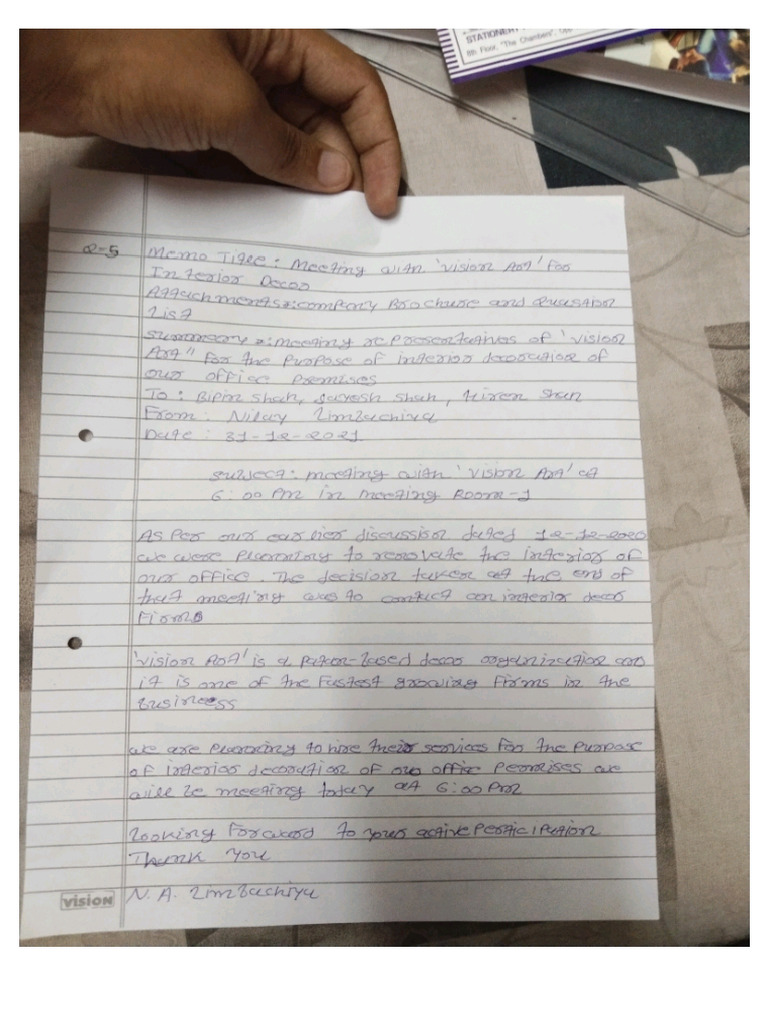 STATIONER
8th Floor, "The Chambers", Opp
Q-5
Memo Title : Meeting with 'Vision Art' for
Interior Decor
Attachments : company Brochure and Quastion
List
summery : meeting representatives of 'vision
Art" for the purpose of interior decoration of
our office premises
To : Bipin Shah, Jayesh Shah, Hiren Shah
From : Nilay Limbachiya
Date : 31-12-2021
subject : meeting with 'Vision Art' at
6:00 PM in meeting Room-1
As per our earlier discussion dated 12-12-2020
we were planning to renovate the interior of
our office. The decision taken at the end of
that meeting was to contact an interior decor
firm
'vision Art' is a based decor organization and
it is one of the fastest growing firms in the
business
we are planning to hire their services for the purpose
of interior decoration of our office pemrises we
will be meeting today at 6:00 PM
looking forward to your active perticipation
Thank you
N. A. Limbachiya
VISION